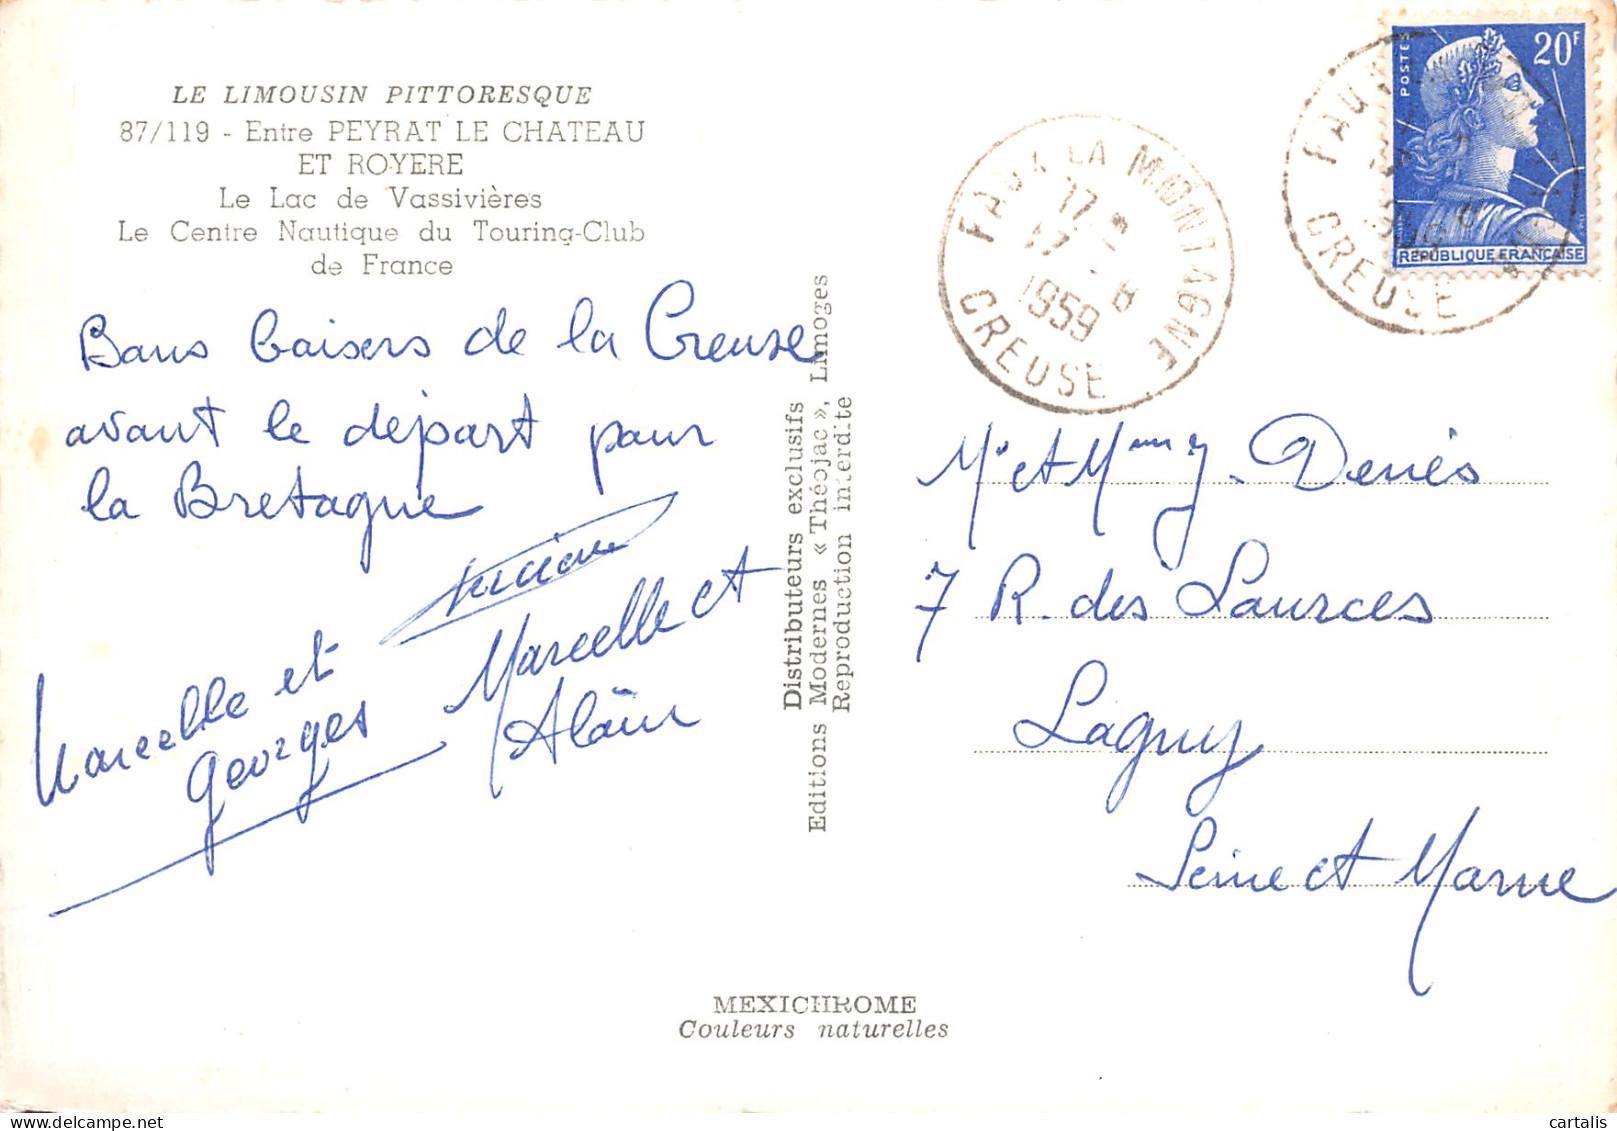 LE LIMOUSIN PITTORESQUE
87/119 - Entre PEYRAT LE CHATEAU
ET ROYERE
Le Lac de Vassivières
Le Centre Nautique du Touring-Club
de France
Bons baisers de la Creuse
avant le départ pour
la Bretagne
Marcelle et
Georges
Marcelle et
Alain
Distributeurs exclusifs
Editions Modernes « Théojac », Limoges
Reproduction interdite
MEXICHROME
Couleurs naturelles
FAUX LA MONTAGNE
17
17 - 8
1959
CREUSE
FAUX LA MONTAGNE
CREUSE
POSTES
20F
REPUBLIQUE FRANÇAISE
Mr et Mme Denis
7 R. des Sources
Lagny
Seine et Marne
cartalis